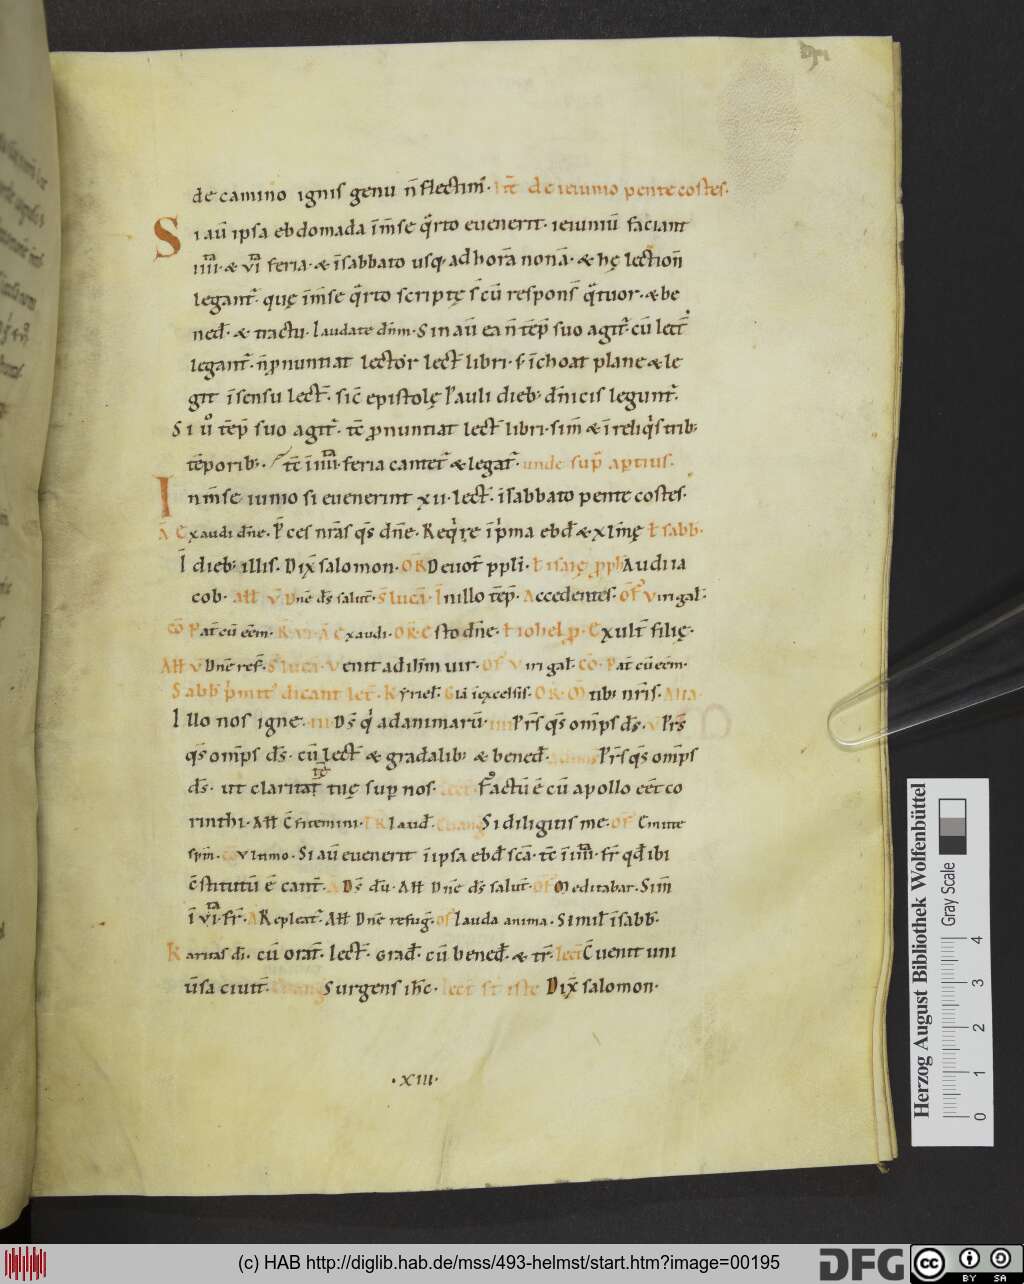 de camino ignis genu n̄ flectim̄. It̄ de ieiunio pentecostes.
Si aū ipsa ebdomada īmse qͥrto evenerit. ieiuniū faciant
iiii. & vi feria. & īsabbato usq; ad horā nonā. & hę lection̄
legant̄. quę īmse qͥrto scriptę s̄ cū respons̄ qͣtuor. & be
ned̄. & tractu. Laudate dn̄m. Sin aū ea n̄ tēp̄ suo agit̄. cū lect̄
legant̄. n̄ pnuntiat lector lect̄ libri. s; īchoat plane & le
git īsensu lect̄. sic̄ epistolę Pauli dieb; dn̄icis legunt̄.
Si ū tēp̄ suo agit̄. tc̄ pnuntiat lect̄ libri. sim̄ & ī reliqͥs trib;
tēporib;. tc̄ ī iiii feria cantet̄ & legat̄. unde sup̄ aptius.
In mse iunio si evenerint xii. lect̄. īsabbato pentecostes.
Ā Exaudi dn̄e. P̄ces nr̄as qs̄ dn̄e. Reqͥre īpͥma ebd̄ & xlmę
I dieb; illis. Dix̄ salomon. OR̄ Devot̄ ppl̄i. isaię pph̄ Audi ia
cob. All̄ V̄ Dn̄e ds̄ salut̄. S̄ lucā. In illo tēp̄. Accedentes. Of̄ Viri gal̄.
Cō Pat̄ cū eēm. Ā Exaudi. OR̄. Esto dn̄e. iohel p̄. Exult̄ filię.
All̄ V̄ Dn̄e ref̄. S̄ luca. Venit ad ihm̄ vir. Of̄ Viri gal̄. Cō. Pat̄ cū eēm.
Sabb̄ pͥmit̄ dicant̄ let̄. Kyriel̄. Gl̄a īexcelsis. OR̄. M̄tib; nr̄is.
Illo nos igne. iii. Ds̄ qͥ ad animarū. iiii Pr̄s qs̄ omps̄ ds̄. v Pr̄s
qs̄ omps̄ ds̄. cū lect̄ & gradalib; & bened̄. Pr̄s qs̄ omps̄
ds̄. ut claritat̄ tuę sup nos. lect̄ Factū ē cū apollo eēt co
rinthi. All̄ Cfitemini. TR̄ Laud̄. Euanḡ Si diligitis me. Of̄ Emitte
spm̄. co Vltimo. Si aū evenerit ī ipsa ebd̄ scā. tc̄ ī iiii. fr̄ qd̄ ibi
c̄stitutū ē cant̄. A Ds̄ dū. All̄ Dn̄e ds̄ salut̄. Of̄ Meditabar. Sim̄
ī vi. fr̄. A Repleat̄. All̄ Dn̄e refuḡ. of̄ Lauda anima. Simil̄ īsabb̄.
Karitas di. cū orat̄. lect̄. Grad̄. cū bened̄. & tr̄. lect̄ Cvenit uni
ūsa civit̄. Euanḡ Surgens ihc̄. lect̄ st̄ iste Dix̄ salomon.
.XIII.
Herzog August Bibliothek Wolfenbüttel
Gray Scale
0 1 2 3 4
(c) HAB http://diglib.hab.de/mss/493-helmst/start.htm?image=00195
DFG
cc BY SA